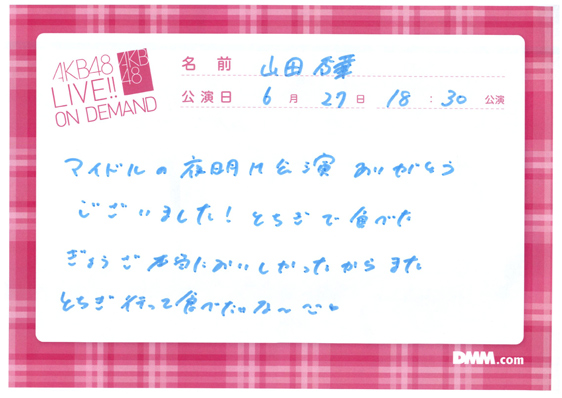 AKB48
LIVE!!
ON DEMAND
AKB
48
名前 山田杏華
公演日 6月 27日 18:30 公演
マイドルの夜明け公演 ありがとう
ございました! とちぎで食べた
ぎょうざ本当においしかったからまた
とちぎ行って食べたいな〜
DMM.com